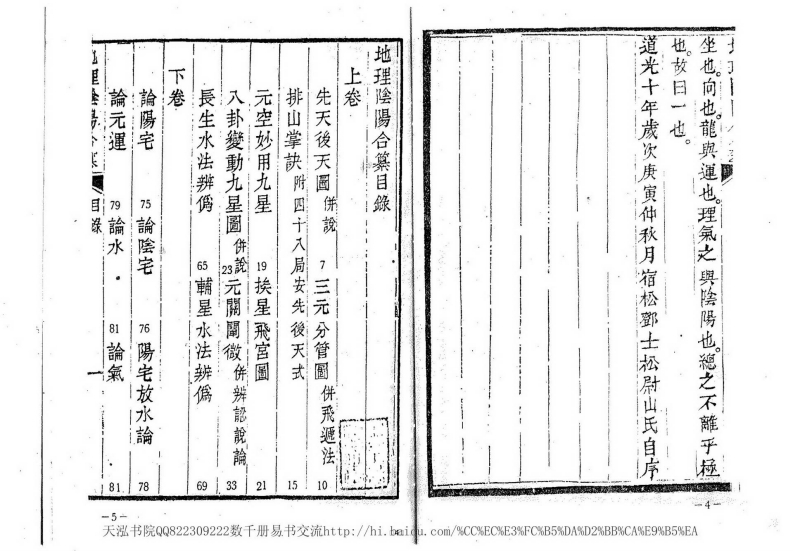 坐也。向也。龍與運也。理氣之與陰陽也。總之不離乎極
也。故曰一也。
道光十年歲次庚寅仲秋月宿松鄧士松尉山氏自序
-4-
地理陰陽合纂目錄
上卷
先天後天圖 併說 7 三元分管圖 併飛遞法 10
排山掌訣 附四十八局安先後天式 15
元空妙用九星 19 挨星飛宮圖 21
八卦變動九星圖 併說 23 元關闡微 併辨認說論 33
長生水法辨僞 65 輔星水法辨僞 69
下卷
論陽宅 75 論陰宅 76 陽宅放水論 78
論元運 79 論水 81 論氣 81
地理陰陽合纂 目錄 一
-5-
天泓书院QQ822309222数千册易书交流http://hi.baidu.com/%CC%EC%E3%FC%B5%DA%D2%BB%CA%E9%B5%EA